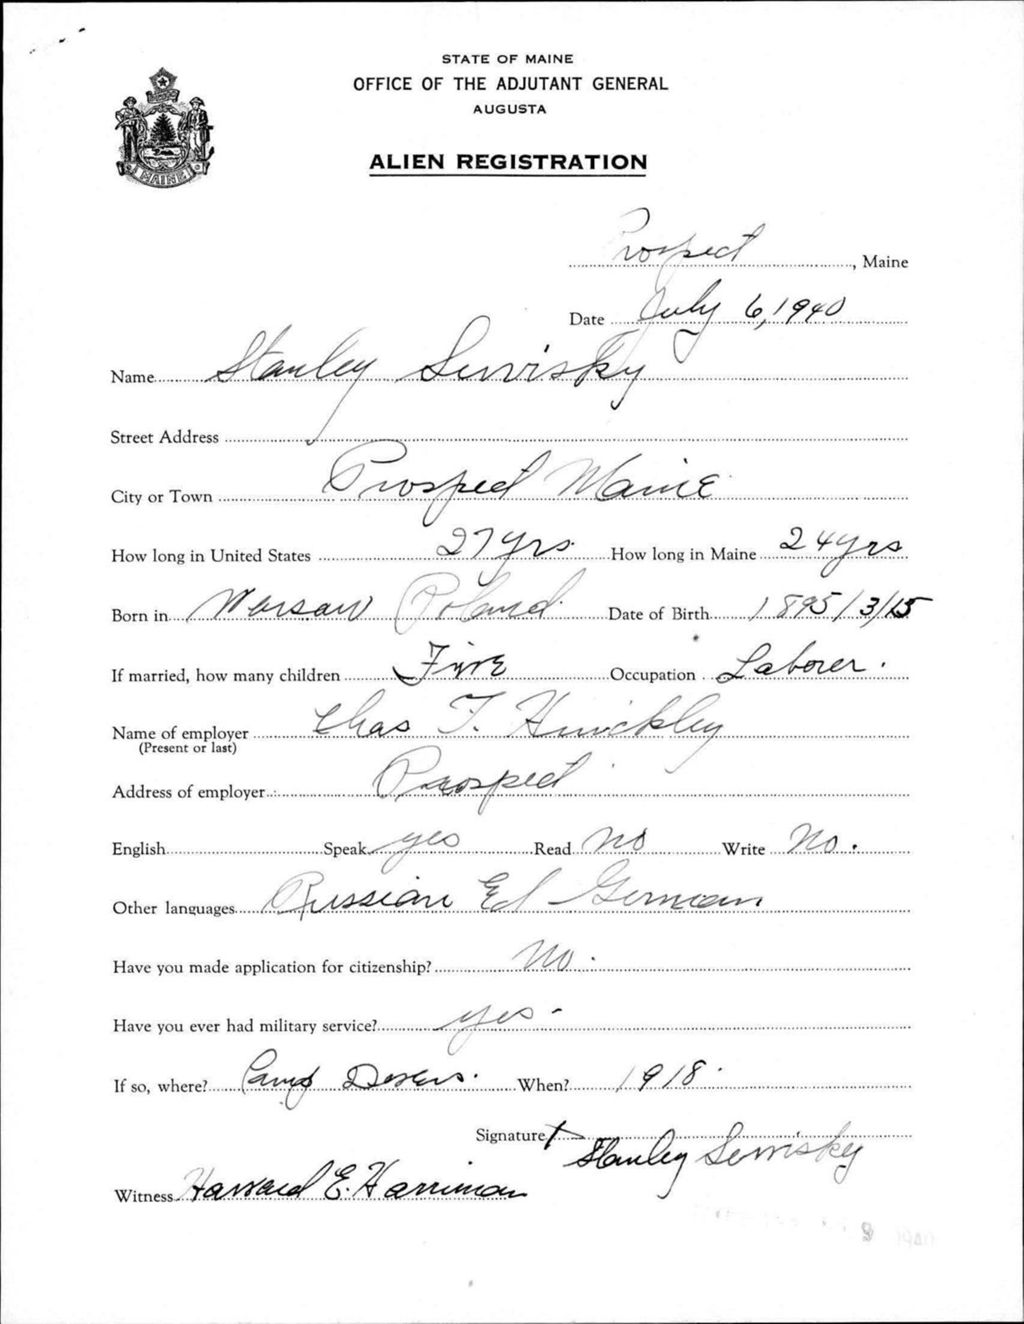 STATE OF MAINE
OFFICE OF THE ADJUTANT GENERAL
AUGUSTA
MAINE
ALIEN REGISTRATION
Prospect, Maine
Date July 6, 1940
Name Stanley
Street Address
City or Town Prospect Maine
How long in United States 27 yrs. How long in Maine 24 yrs
Born in Warsaw Poland. Date of Birth 1895/3/15
If married, how many children Five Occupation Laborer.
Name of employer Chas F. Hinckley
(Present or last)
Address of employer Prospect
English Speak yes Read no Write No.
Other languages Russian German
Have you made application for citizenship? No.
Have you ever had military service? yes-
If so, where? Camp Devens. When? 1918.
Signature X Stanley
Witness Harvard E. Harriman